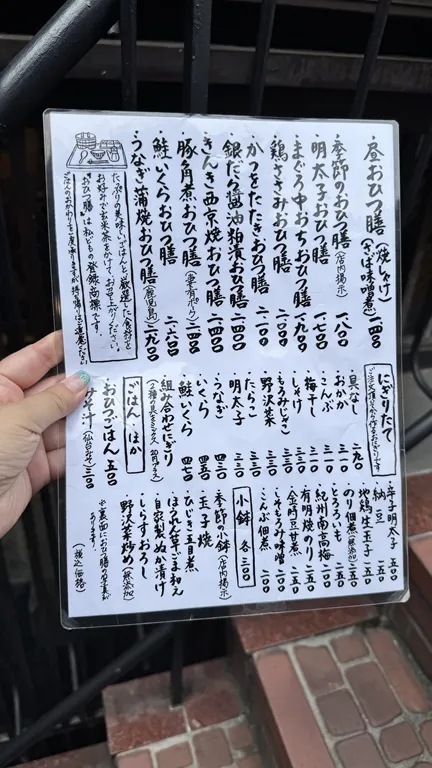 ・昼おひつ膳(焼しゃけ)(さば味噌煮) 一四〇〇
・季節のおひつ膳(店内掲示) 一八〇〇
・明太子おひつ膳 一七〇〇
・まぐろ中おちおひつ膳 一九〇〇
・鶏ささみおひつ膳
・かつをたたきおひつ膳 二一〇〇
・銀だら醤油粕漬おひつ膳 二四〇〇
・きんき西京焼おひつ膳 二四〇〇
・豚角煮おひつ膳
・鮭いくらおひつ膳 二六〇〇
・うなぎ蒲焼おひつ膳(鹿児島) 三九〇〇
た、釜炊の美味いごはんと厳選した食材を
お好みで玄米茶をかけて、お召し上がりください。
“おひつ膳”は私どもの登録商標です。
にぎりたて
ご注文頂いてから作るおむすびです
・具なし 二九〇
・おかか
・こんぶ
・梅干し
・しゃけ
・もろみじそ
・野沢菜
・たらこ
・明太子
・うなぎ
・いくら
・鮭いくら
・組み合わせにぎり
ごはん・ほか
・おひつごはん 五〇〇
みそ汁(仙台みそ) 三〇〇
・辛子明太子 五五〇
・納豆 二五〇
・地鶏生玉子
・のり佃煮(無添加) 二五〇
・とろろいも
・紀州南高梅 二五〇
・有明焼のり 二五〇
・金時豆甘煮 二〇〇
・こんぶ佃煮 二〇〇
小鉢 各三〇〇
・季節の小鉢(店内掲示)
・玉子焼
・ひじき五目煮
・ほうれん草ごま和え
・自家製ぬか漬け
・しらすおろし
・野沢菜炒め(無添加)
※裏面におひつ膳のお品書きがあります!
(税込価格)